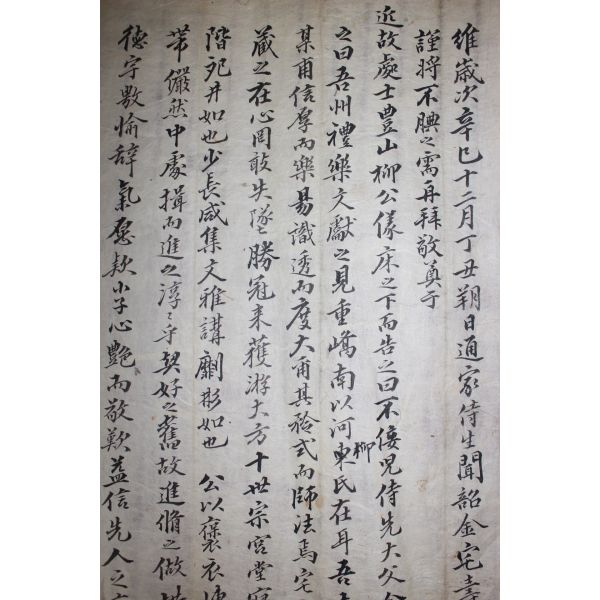 維歲次辛巳十二月丁丑朔日通家侍生聞韶金宅壽
謹將不腆之需再拜敬奠于
近故處士豊山柳公儀床之下而告之曰不佞兒侍先大父
之曰吾州禮樂文獻之見重嶠南以河東柳氏在耳吾
某甫信厚而樂易識透而度大甫其矜式而師法焉宅
蔵之在心罔敢失墜勝冠来獲游大方十世宗宮堂
階戺井如也少長咸集文雅講劘彬如也 公以褒衣
带儼然中處揖而進之淳淳乎契好之舊故進脩之做
德宇敷愉辭氣懇款小子心艶而敬歎盖信先人之